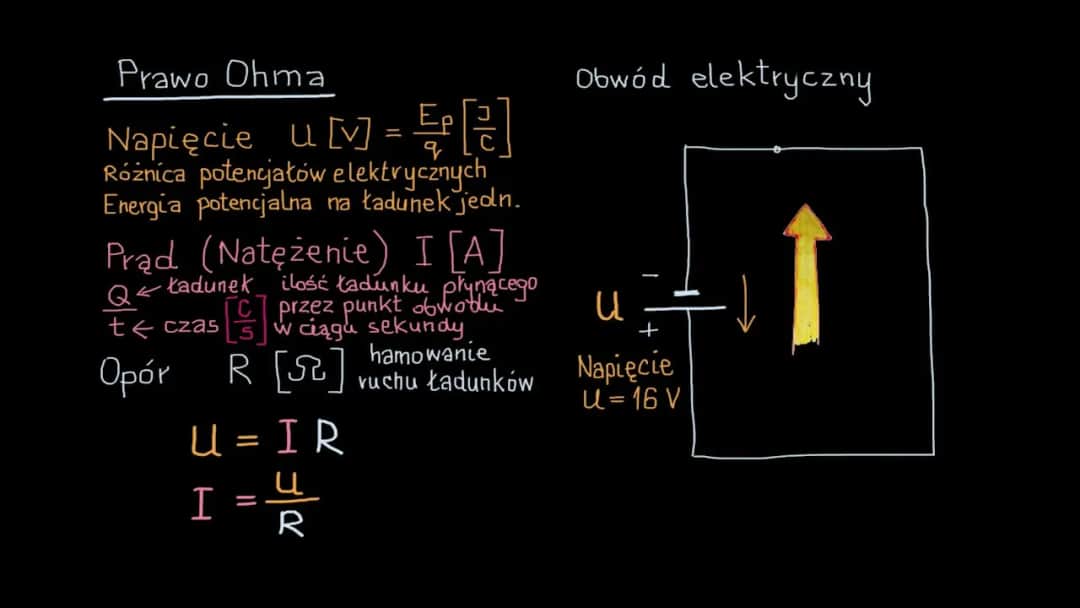 Prawo Ohma
Napięcie U [V] = Ep/q [J/C]
Różnica potencjałów elektrycznych
Energia potencjalna na ładunek jedn.
Prąd (Natężenie) I [A]
Q/t ← ładunek ← czas [C/s] ilość ładunku płynącego
przez punkt obwodu
w ciągu sekundy
Opór R [Ω] hamowanie
ruchu ładunków
U = I R
I = U/R
Obwód elektryczny
−
U
+
Napięcie
U = 16 V